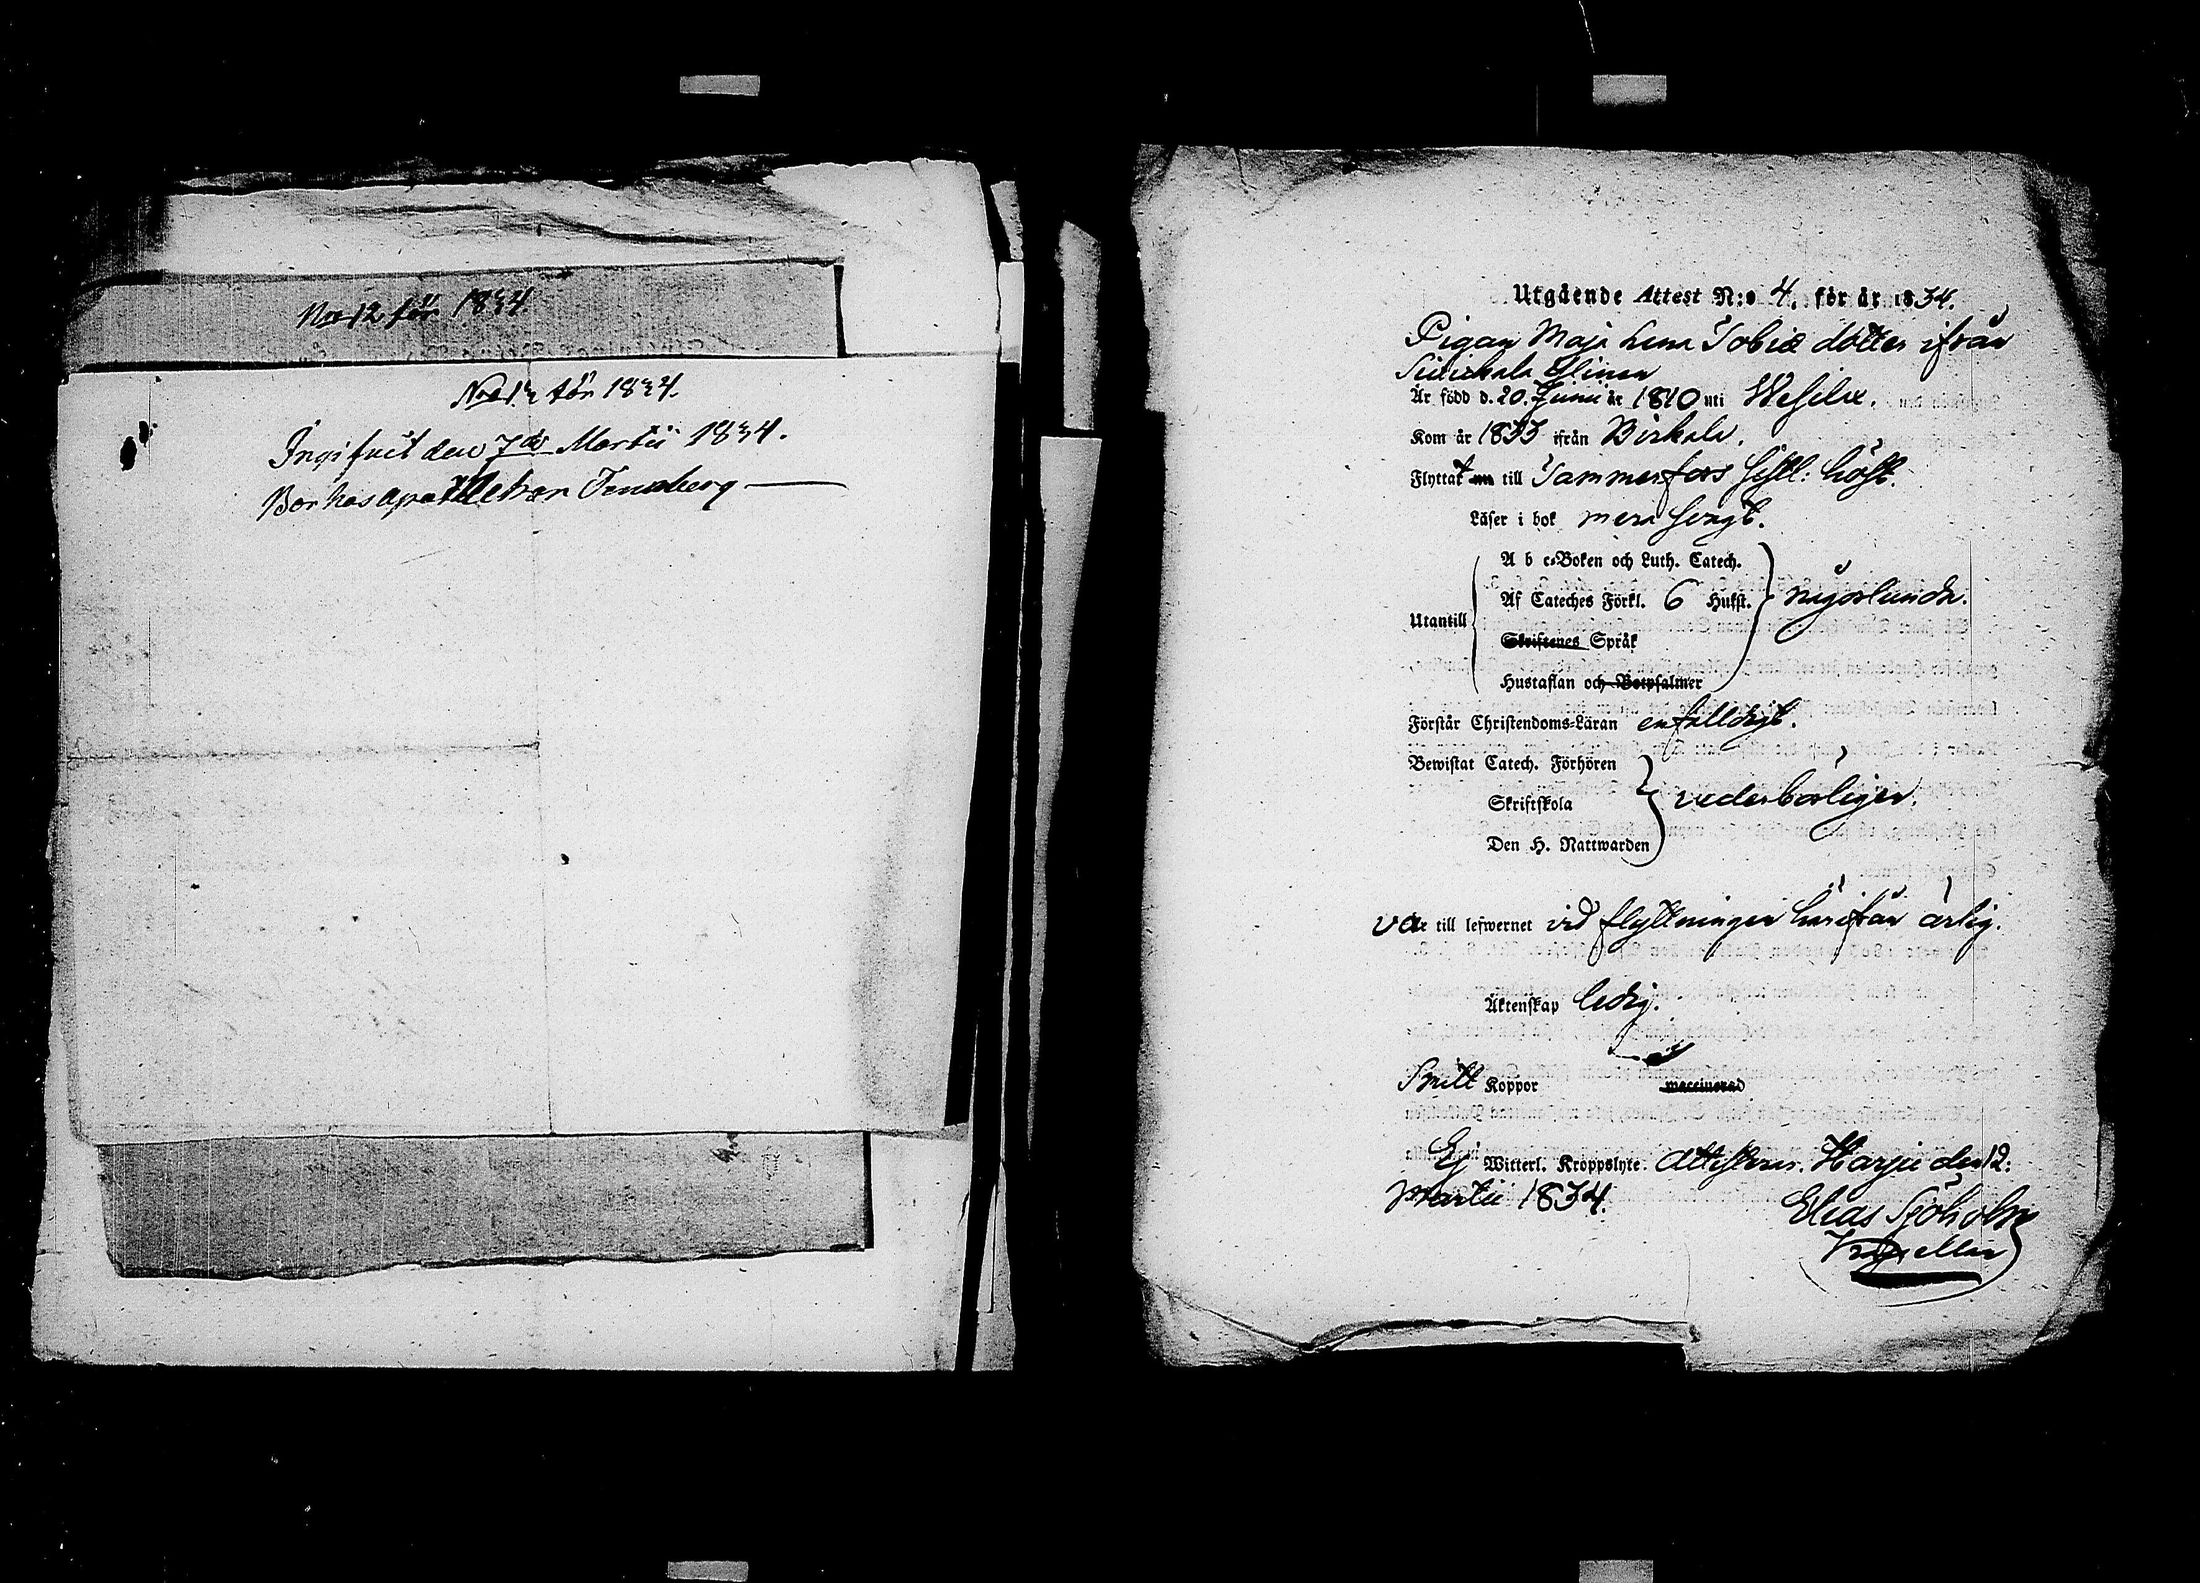 No 12 för 1834.
No 12 för 1834.
Ingifvit den 7de Martii 1834.
Bor hos apothekar
Utgående Attest N:o 4. för år 1834.
Pigan Maja Lena Tobiæ dotter ifrån
Är född d. 20. Junii år 1810 uti Wesilax.
Kom år 1833 ifrån Birkala.
Flyttat till Tammerfors sistl: höst.
Läser i bok mera svagt.
A b c-Boken och Luth. Catech.
Af Cateches Förkl. 6 Hufst. någorlunda.
Utantill
Skriftenes Språk
Hustaflan och Botpsalmer
Förstår Christendoms-Läran enfalldigt.
Bewistat Catech. Förhören
Skriftskola vederbörligen.
Den H. Nattwarden
var till lefwernet vid flyttningen härifrån ärlig.
Äktenskap ledig.
Koppor vaccinerad
Ej Witterl. Kroppslyte. Attesteras. Harju den 12.
Martii 1834.
Elias Sjöholm